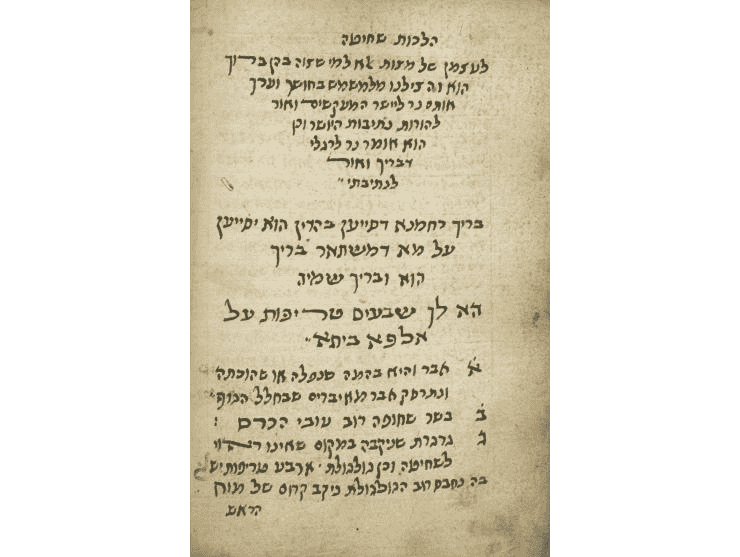 הלכות שחיטה
לעצמן של מצות לא למי שצוה בהן ברוך
הוא והצילנו מלמשמש בחושך וערך
אותם נר ליישר המעקשים ואור
להורות נתיבות היושר וכן
הוא אומר נר לרגלי
דבריך ואור
לנתיבתי
בריך רחמנא דסייען בהדין הוא יסייען
על מא דמשתאר בריך
הוא ובריך שמיה
הא לך שבעים טריפות על
אלפא ביתא
א אבר והיא בהמה שנפלה או שהוכתה
ונתרסק אבר מאיברים שבחלל הגוף
ב בשר שחופה רוב עובי הכרס :
ג גרגרת שניקבה במקום שאינו ראוי
לשחיטה וכן גולגולת ארבע טריפות יש
בה נחבס רוב הגולגולת ניקב קרום של מוח
הראש